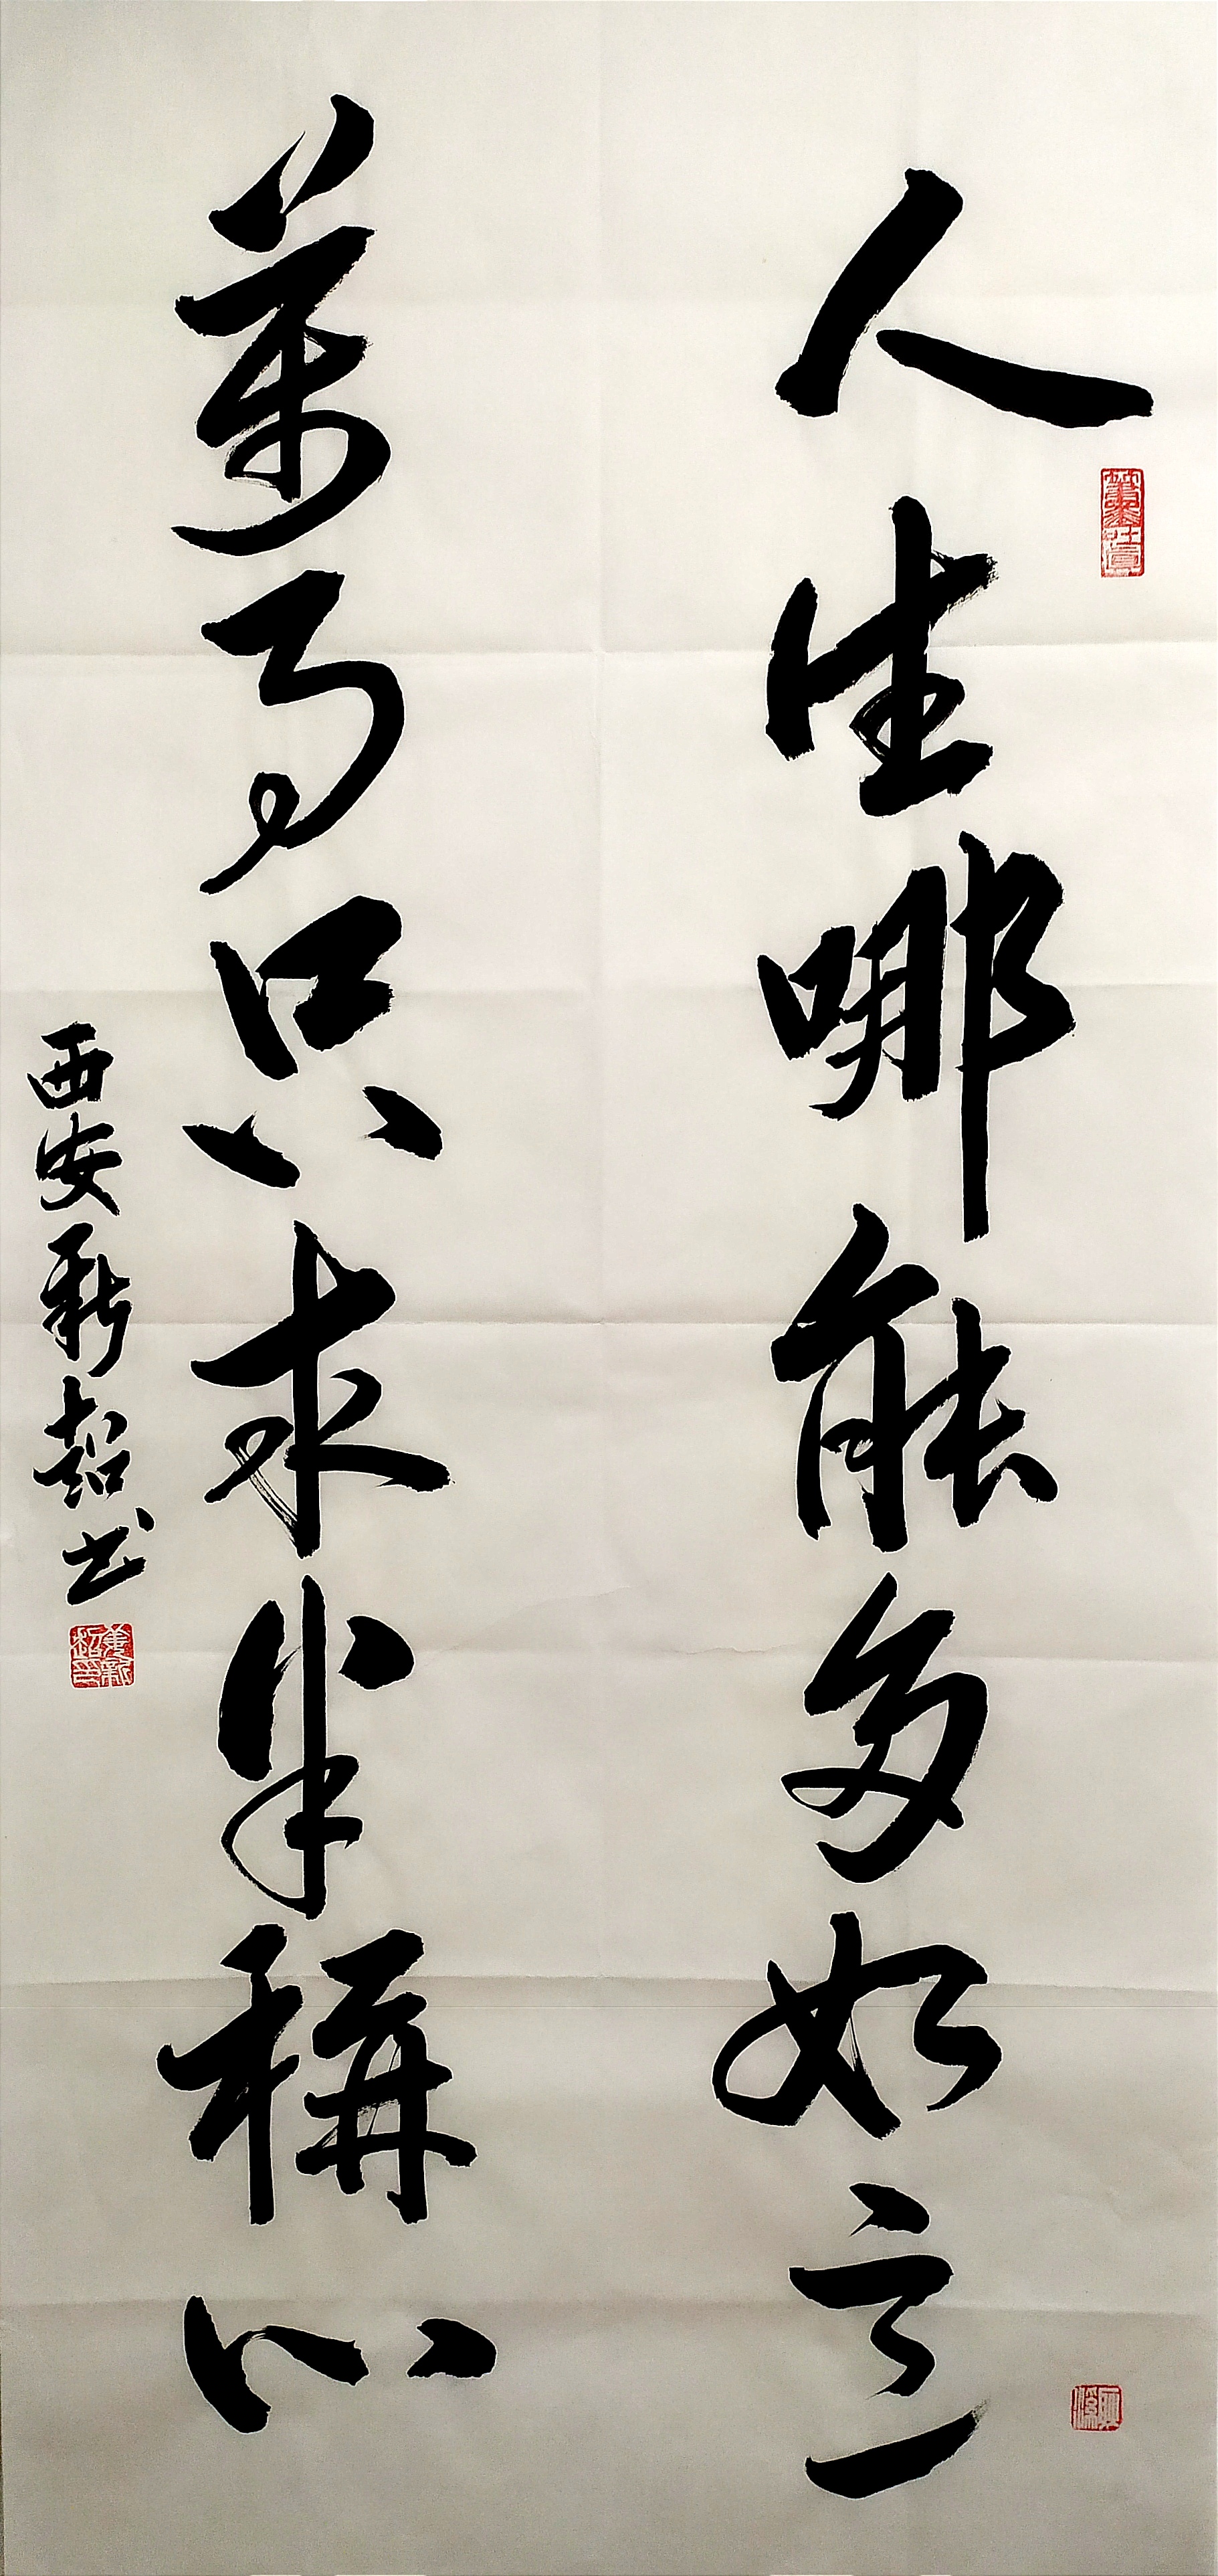 人生哪能多如意
萬事只求半稱心
西安新超书